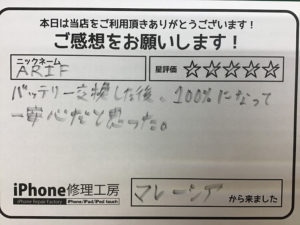 本日は当店をご利用頂きありがとうございます！
ご感想をお願いします！
ニックネーム
ARIF
星評価 ☆☆☆☆☆
バッテリー交換した後、100%になって
一安心だと思った。
iPhone修理工房
iPhone Repair Factory iPhone/iPad/iPod touch
マレーシア から来ました